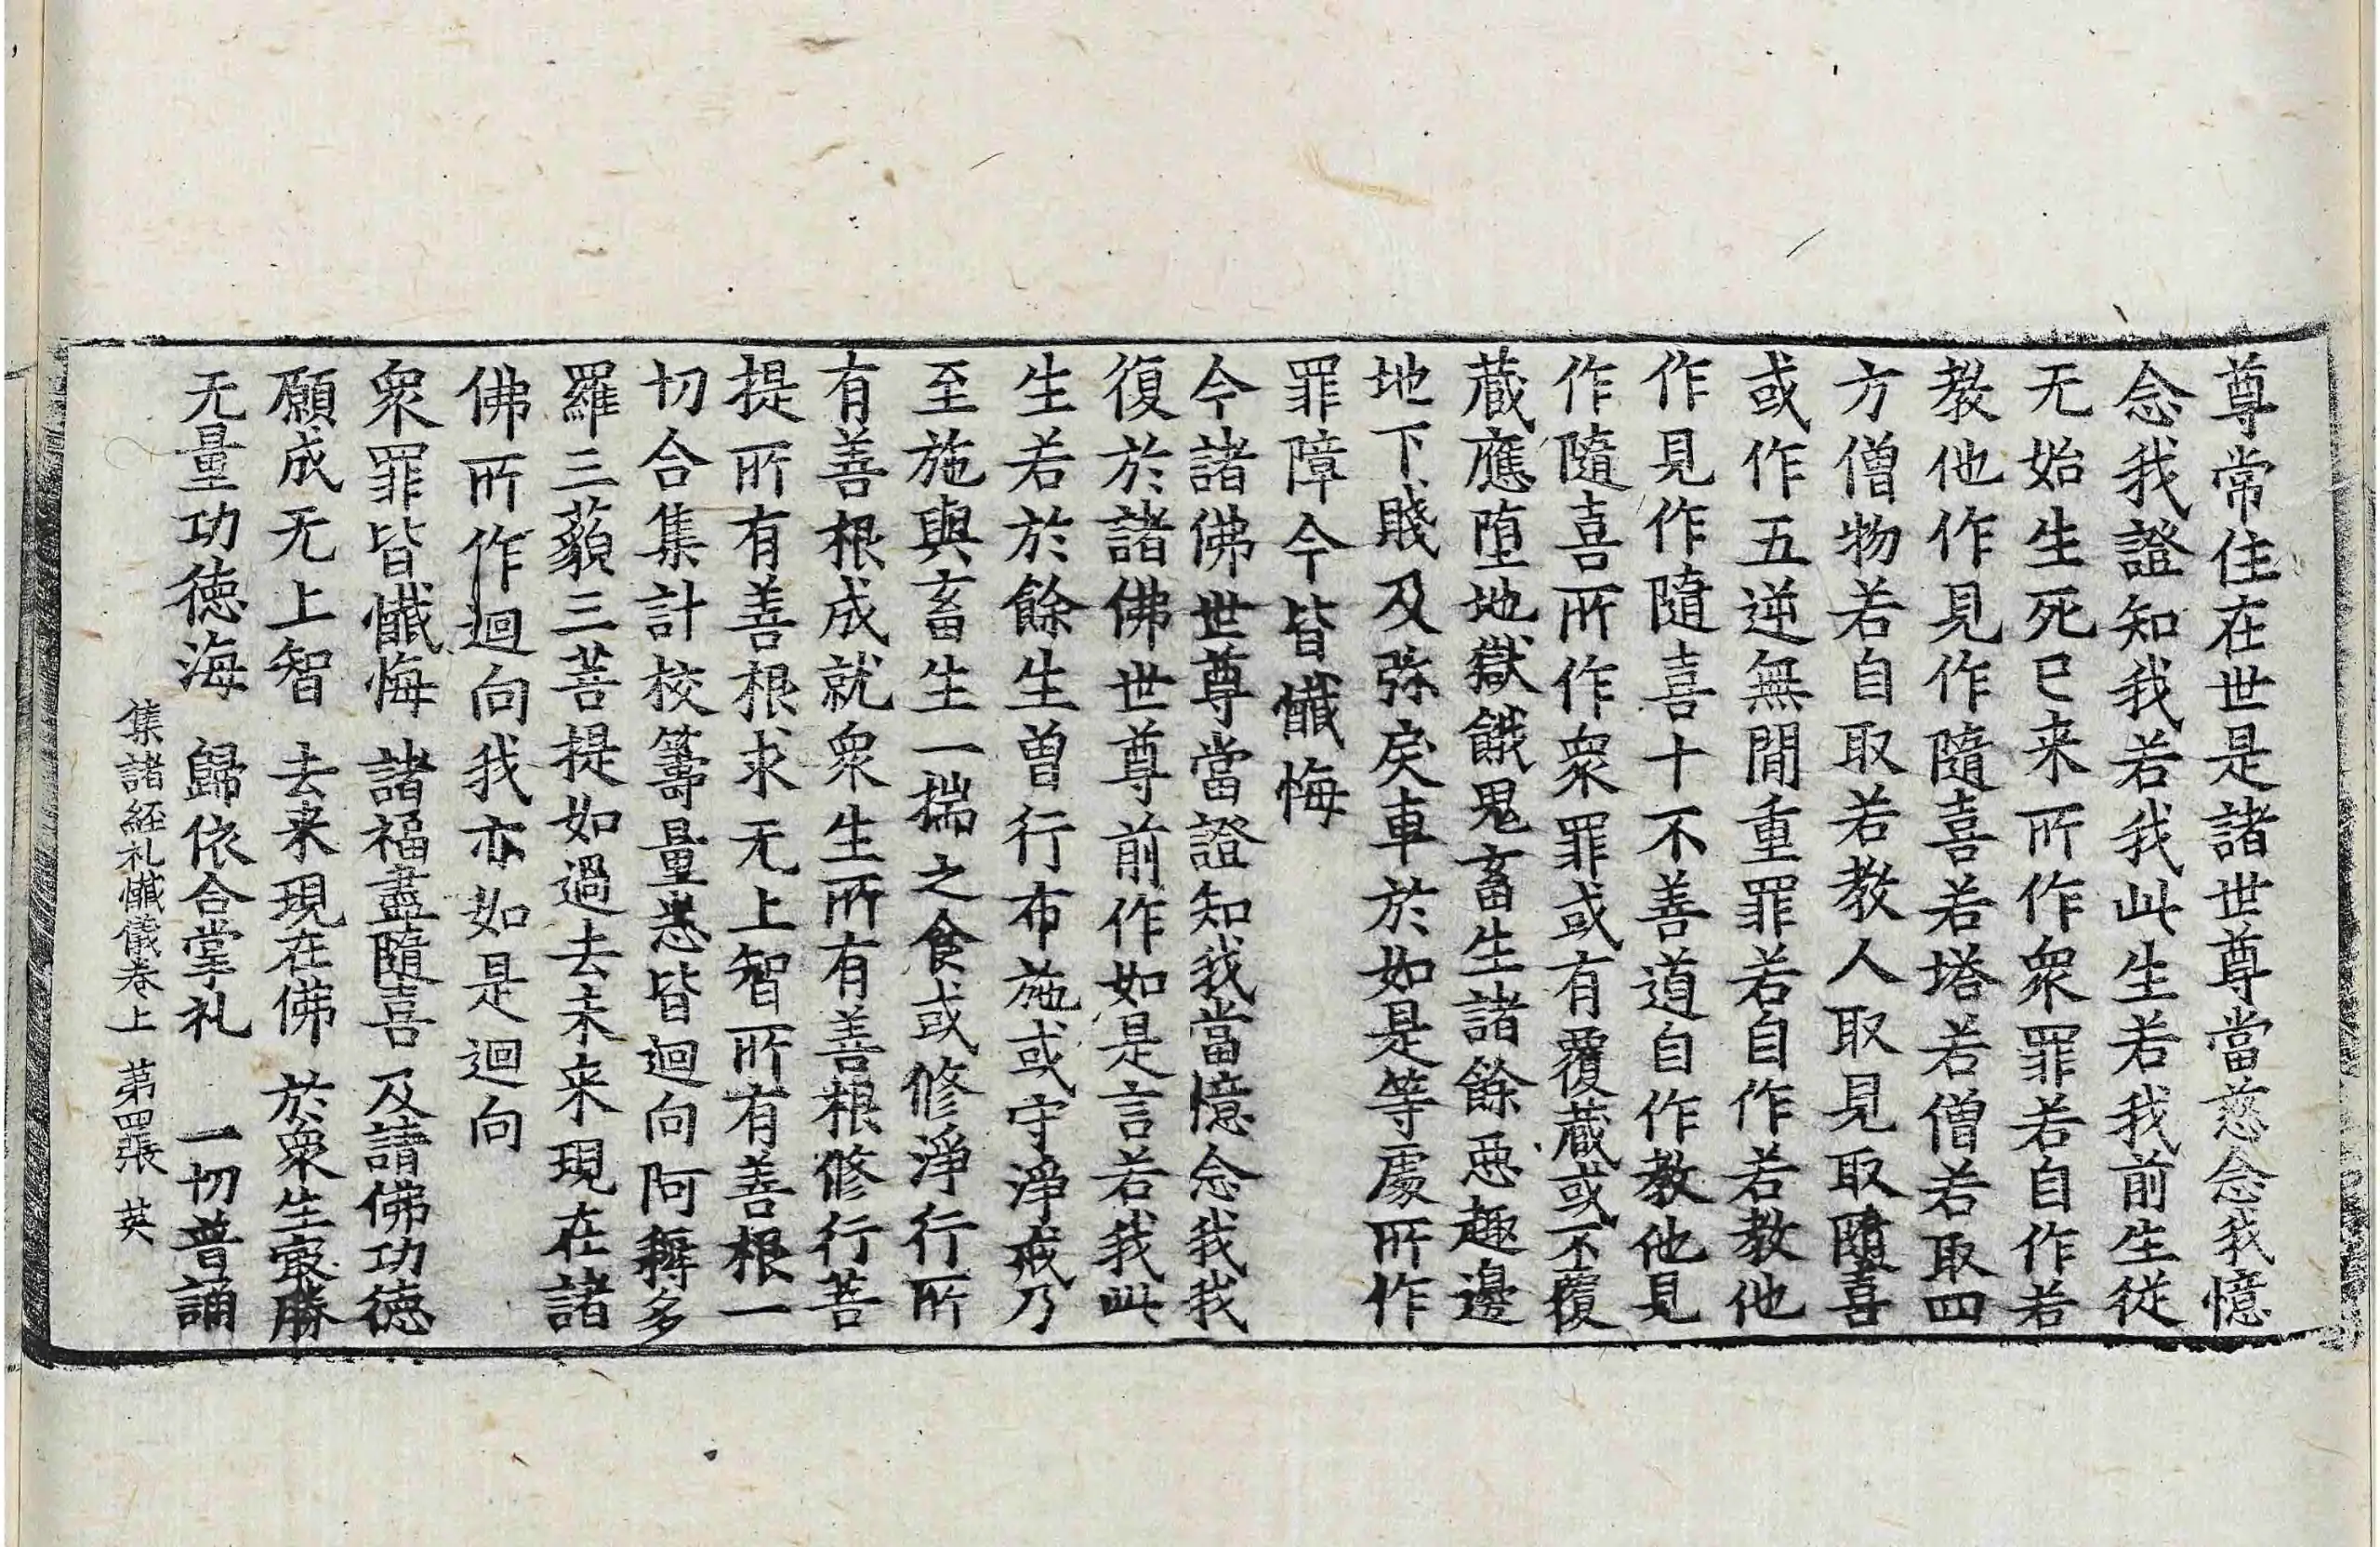 尊常住在世是諸世尊當慈念我憶
念我證知我若我此生若我前生從
无始生死已来所作衆罪若自作若
教他作見作隨喜若塔若僧若取四
方僧物若自取若教人取見取隨喜
或作五逆無間重罪若自作若教他
作見作隨喜十不善道自作教他見
作隨喜所作衆罪或有覆蔵或不覆
蔵應堕地獄餓鬼畜生諸餘惡趣邊
地下賤及弥戾車於如是等處所作
罪障今皆懺悔
今諸佛世尊當證知我當憶念我我
復於諸佛世尊前作如是言若我此
生若於餘生曾行布施或守淨戒乃
至施與畜生一揣之食或修淨行所
有善根成就衆生所有善根修行菩
提所有善根求无上智所有善根一
切合集計校籌量悉皆迴向阿耨多
羅三藐三菩提如過去未来現在諸
佛所作迴向我亦如是迴向
衆罪皆懺悔 諸福盡隨喜 及請佛功徳
願成无上智 去来現在佛 於衆生㝡勝
无量功徳海 歸依合掌礼 一切普誦
集諸経礼懺儀卷上 苐四張 英